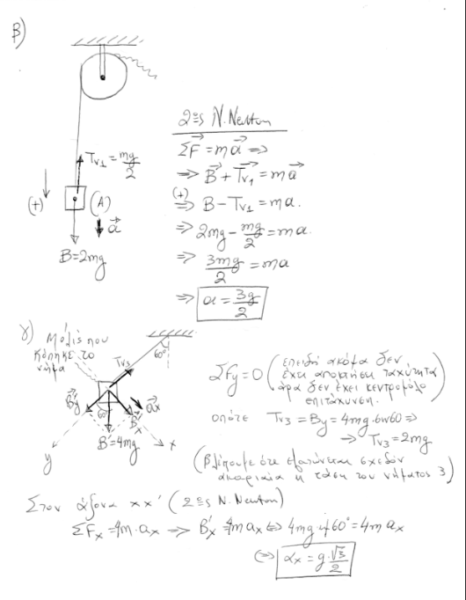 β)
2ος Ν. Newton
ΣF⃗ = ma⃗ ⇒
⇒ B⃗ + T⃗ν₁ = ma⃗
(+)
⇒ B - Tν₁ = ma.
⇒ 2mg - mg/2 = ma
⇒ 3mg/2 = ma
⇒ a = 3g/2
Tν₁ = mg/2
(+)
(A)
a⃗
B = 2mg
γ)
Μόλις που
κόπηκε το
νήμα
Tν₃
60°
B⃗'y
60°
B⃗'x
a⃗x
B' = 4mg
y
x
ΣFy = 0 (επειδή ακόμα δεν
έχει αποκτήσει ταχύτητα
άρα δεν έχει κεντρομόλο
επιτάχυνση.)
οπότε Tν₃ = By = 4mg.συν60 ⇒
⇒ Tν₃ = 2mg
(βλέπουμε ότι εξαρτάται σχεδόν
ακαριαία η τάση του νήματος 3)
Στον άξονα xx' (2ος Ν. Newton)
ΣFx = 4m.ax ⇒ B'x = 4m ax ⇔ 4mg.ημ60° = 4m ax
⇔ αx = g.√3/2